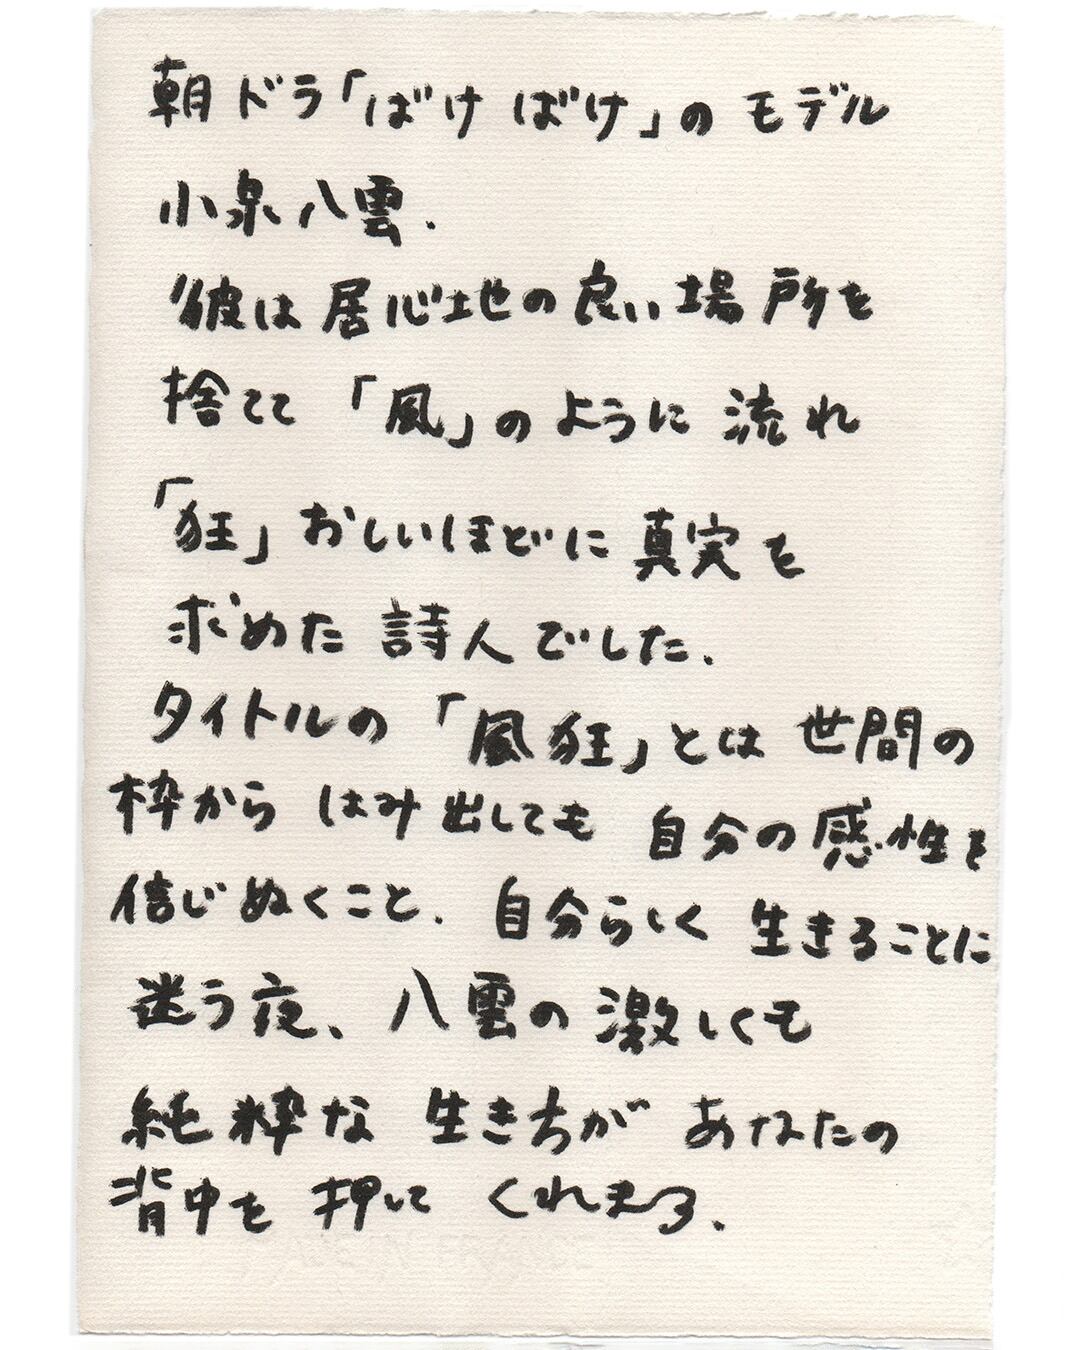 朝ドラ「ばけばけ」のモデル
小泉八雲.
彼は居心地の良い場所を
捨てて「風」のように流れ
「狂」おしいほどに真実を
求めた詩人でした.
タイトルの「風狂」とは世間の
枠からはみ出しても自分の感性を
信じぬくこと.自分らしく生きることに
迷う夜、八雲の激しくも
純粋な生き方があなたの
背中を押してくれます.